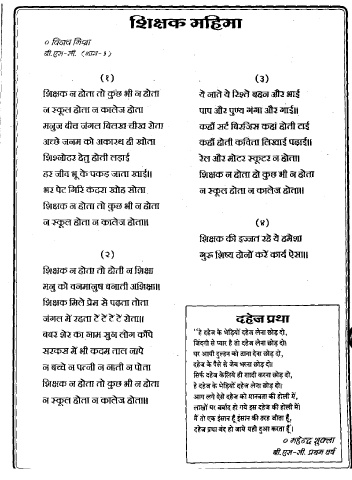 शिक्षक महिमा
० विनय मिश्रा
बी.एस-सी. (भाग-१)
(१)
शिक्षक न होता तो कुछ भी न होता
न स्कूल होता न कालेज होता
मनुज बीच जंगल बिलख चीख रोता
अच्छे जनम को अकारथ ही खोता
शिश्नोदर हेतु होती लड़ाई
हर जीव भू के पकड़ जाता खाई॥
भर पेट गिरि कंदरा खोह सोता
शिक्षक न होता तो कुछ भी न होता
न स्कूल होता न कालेज होता॥
(२)
शिक्षक न होता तो होती न शिक्षा
मनु को वनमानुष बनाती अशिक्षा॥
शिक्षक मिले प्रेम से पढ़ता तोता
जंगल में रहता टें टें टें टें रोता॥
बबर शेर का नाम सुन लोग काँपे
सरकस में भी कदम ताल नापे
न बच्चे न पत्नी न नाती न पोता
शिक्षक न होता तो कुछ भी न होता
न स्कूल होता न कालेज होता॥
(३)
ये नाते ये रिश्ते बहन और भाई
पाप और पुण्य गंगा और गाई॥
कहाँ सर्ट बिरजिस कहां होती टाई
कहाँ होती कविता लिखाई पढ़ाई॥
रेल और मोटर स्कूटर न होता।
शिक्षक न होता हो कुछ भी न होता
न स्कूल होता न कालेज होता॥
(४)
शिक्षक की इज्जत रहे ये हमेशा
गुरू शिष्य दोनों करें कार्य ऐसा॥
दहेज प्रथा
"हे दहेज के भेड़ियों दहेज लेना छोड़ दो,
जिंदगी से प्यार है तो दहेज लेना छोड़ दो।
घर आयी दुल्हन को ताना देना छोड़ दो,
दहेज के पैसे से जेब भरना छोड़ दो।
सिर्फ दहेज केलिये ही शादी करना छोड़ दो,
हे दहेज के भेड़ियों दहेज लेना छोड़ दो।
आग लगे ऐसे दहेज को मानवता की होली में,
लाखों घर बर्बाद हो गये इस दहेज की होली में।
मैं तो एक इंसान हूँ इंसान की तरह जीता हूँ,
दहेज प्रथा बंद हो जाये यही दुआ करता हूँ।
० महेन्द्र शुक्ला
बी.एस-सी. प्रथम वर्ष